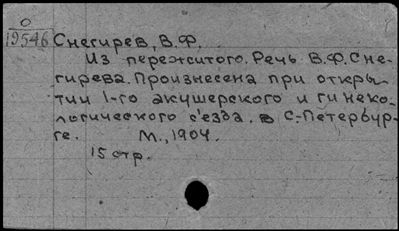 О
19546
Снегирев, В.Ф.
Из пережитого. Речь В.Ф. Сне-
гирева. Произнесена при откры-
тии 1-го акушерского и гинеко-
логического с'езда, в С.-Петербур-
ге. М., 1904.
15 стр.